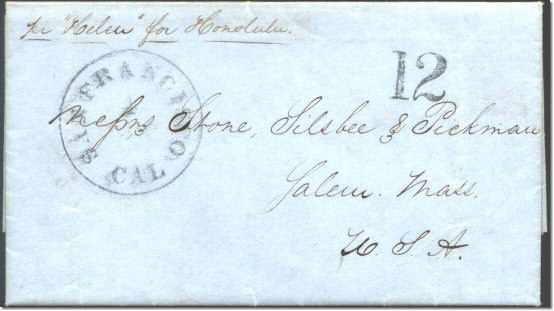 pr "Helen" for Honolulu.
12
SAN FRANCISCO
CAL
Messrs Stone, Silsbee & Pickman
Salem. Mass.
U. S. A.